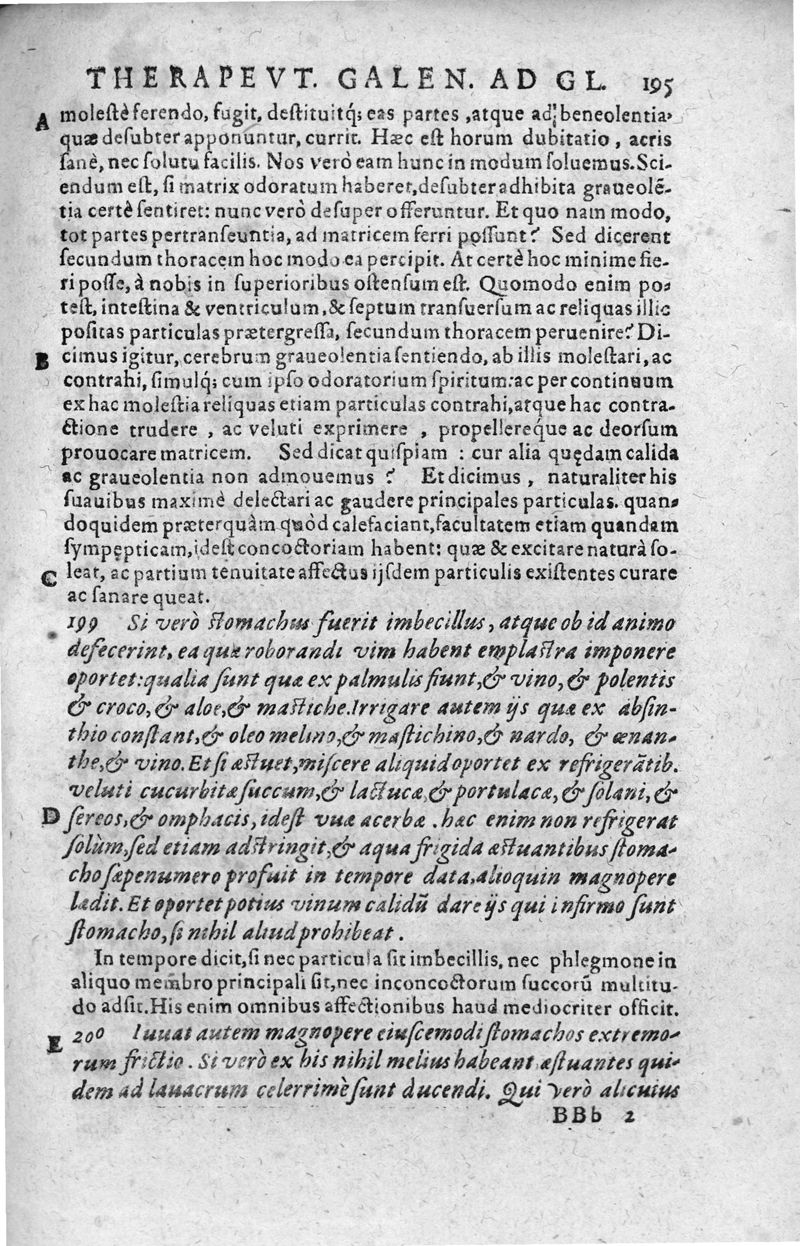 THERAPEVT. GALEN. AD GL. 195
A molestè ferendo, fugit, destituitq́; eas partes, atque ad beneolentia,
quæ desubter apponuntur, currit. Hæc est horum dubitatio, acris
sanè, nec solutu facilis. Nos verò eam hunc in modum soluemus. Sci-
endum est, si matrix odoratum haberet, desubter adhibita graueolẽ-
tia certè sentiret: nunc verò desuper offeruntur. Et quo nam modo,
tot partes pertranseuntia, ad matricem ferri possunt? Sed dicerent
secundum thoracem hoc modo ea percipit. At certè hoc minime fie-
ri posse, à nobis in superioribus ostensum est. Quomodo enim po-
test, intestina & ventriculum, & septum transuersum ac reliquas illic
positas particulas prætergressa, secundum thoracem peruenire? Di-
B cimus igitur, cerebrum graueolentia sentiendo, ab illis molestari, ac
contrahi, simulq́; cum ipso odoratorium spiritum: ac per continuum
ex hac molestia reliquas etiam particulas contrahi, atque hac contra-
ctione trudere, ac veluti exprimere, propellereq́ue ac deorsum
prouocare matricem. Sed dicat quispiam: cur alia quędam calida
ac graueolentia non admouemus? Et dicimus, naturaliter his
suauibus maximè delectari ac gaudere principales particulas. quan-
doquidem præterquàm quòd calefaciant, facultatem etiam quandam
sympępticam, idest concoctoriam habent: quæ & excitare naturã so-
C leat, ac partium tenuitate affectus ijsdem particulis existentes curare
ac sanare queat.
199 Si verò stomachus fuerit imbecillus, atque ob id animo
defecerint, ea quæ roborandi vim habent emplastra imponere
oportet: qualia sunt quæ ex palmulis fiunt, & vino, & polentis
& croco, & aloe, & mastiche. Irrigare autem ijs quæ ex absin-
thio constant, & oleo melino, & mastichino, & nardo, & œnan-
the, & vino. Et si æstuet, miscere aliquid oportet ex refrigerãtib.
veluti cucurbitæ succum, & lactucæ, & portulacæ, & solani, &
D sereos, & omphacis, idest vuæ acerbæ. hæc enim non refrigerat
solùm, sed etiam adstringit, & aqua frigida æstuantibus stoma-
cho sæpenumero profuit in tempore data, alioquin magnopere
lædit. Et oportet potius vinum calidũ dare ijs qui infirmo sunt
stomacho, si nihil aliud prohibeat.
In tempore dicit, si nec particula sit imbecillis, nec phlegmone in
aliquo membro principali sit, nec inconcoctorum succorũ multitu-
do adsit. His enim omnibus affectionibus haud mediocriter officit.
E 200 Iuuat autem magnopere eiuscemodi stomachos extremo-
rum frictio. Si verò ex his nihil melius habeant æstuantes qui-
dem ad lauacrum celerrimè sunt ducendi. Qui verò alicuius
BBb 2